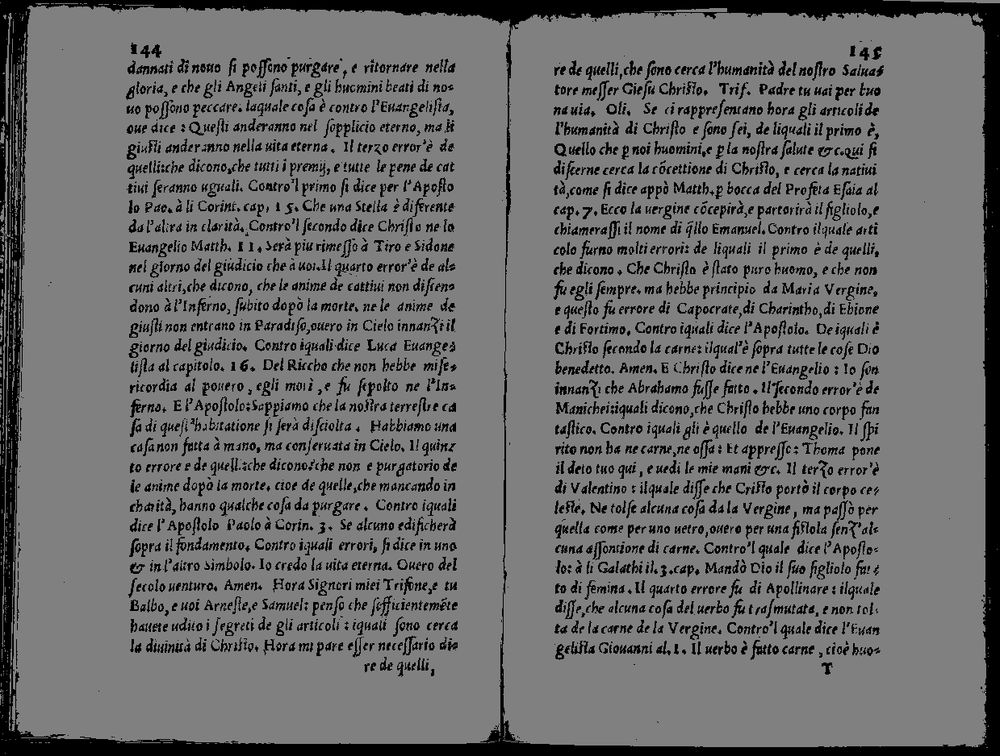 144
dannati di nouo si possono purgare, e ritornare nella
gloria, e che gli Angeli santi, e gli huomini beati di no-
uo possono peccare. laquale cosa è contro l'Euangelista,
oue dice: Questi anderanno nel sopplicio eterno, ma li
giusti anderanno nella uita eterna. Il terzo error'è de
quelli:che dicono,che tutti i premij, e tutte le pene de cat
tiui seranno uguali. Contro'l primo si dice per l'Aposto
lo Pao. à li Corint. cap. 15. Che una Stella è diferente
da l'altra in clarità. Contro'l secondo dice Christo ne lo
Euangelio Matth. 11. Serà piu rimesso à Tiro e Sidone
nel giorno del giudicio che à uoi.Il quarto error'è de al-
cuni altri,che dicono, che le anime de cattiui non discen-
dono à l'Inferno, subito dopò la morte. ne le anime de
giusti non entrano in Paradiso,ouero in Cielo innanzi il
giorno del giudicio. Contro iquali dice Luca Euange-
lista al capitolo. 16. Del Riccho che non hebbe mise-
ricordia al pouero, egli morì, e fu sepolto ne l'In-
ferno. E l'Apostolo:Sappiamo che la nostra terrestre ca
sa di quest'habitatione si serà disciolta. Habbiamo una
casa non fatta à mano, ma conseruata in Cielo. Il quin-
to errore e de quelli:che dicono:che non e purgatorio de
le anime dopò la morte. cioe de quelle,che mancando in
charità, hanno qualche cosa da purgare. Contro iquali
dice l'Apostolo Paolo à Corin. 3. Se alcuno edificherà
sopra il fondamento. Contro iquali errori, si dice in uno
& in l'altro Simbolo. Io credo la uita eterna. Ouero del
secolo uenturo. Amen. Hora Signori miei Trifone,e tu
Balbo, e uoi Arneste,e Samuel: penso che sofficientemēte
hauete udito i segreti de gli articoli: iquali sono cerca
la diuinità di Christo. Hora mi pare esser necessario di-
re de quelli,
145
re de quelli,che sono cerca l'humanità del nostro Salua-
tore messer Giesu Christo. Trif. Padre tu uai per buo
na uia. Oli. Se ci rappresentano hora gli articoli de
l'humanità di Christo e sono sei, de liquali il primo è,
Quello che ꝑ noi huomini,e ꝑ la nostra salute &c.qui si
discerne cerca la cōcettione di Christo, e cerca la natiui
tà,come si dice appò Matth.ꝑ bocca del Profeta Esaia al
cap. 7. Ecco la uergine cōcepirà,e partorirà il figliolo,e
chiamerassi il nome di q̄llo Emanuel. Contro ilquale arti
colo furno molti errori: de liquali il primo è de quelli,
che dicono. Che Christo è stato puro huomo, e che non
fu egli sempre. ma hebbe principio da Maria Vergine,
e questo fu errore di Capocrate,di Charintho,di Ebione
e di Fortimo. Contro iquali dice l'Apostolo. De iquali è
Christo secondo la carne: ilqual'è sopra tutte le cose Dio
benedetto. Amen. E Christo dice ne l'Euangelio: Io son
innanzi che Abrahamo fusse fatto. Il secondo error'è de
Manichei:iquali dicono,che Christo hebbe uno corpo fan
tastico. Contro iquali gli è quello de l'Euangelio. Il spi
rito non ha ne carne,ne ossa: Et appresso: Thoma pone
il deto tuo qui, e uedi le mie mani &c. Il terzo error'è
di Valentino: ilquale disse che Cristo portò il corpo ce-
leste. Ne tolse alcuna cosa da la Vergine, ma passò per
quella come per uno uetro,ouero per una fistola senz'al-
cuna assontione di carne. Contro'l quale dice l'Aposto-
lo: à li Galathi il.3.cap. Mandò Dio il suo figliolo fat-
to di femina. Il quarto errore fu di Apollinare: ilquale
disse,che alcuna cosa del uerbo fu trasmutata, e non tol-
ta de la carne de la Vergine. Contro'l quale dice l'Euan
gelista Giouanni al.1. Il uerbo è fatto carne, cioè huo-
T